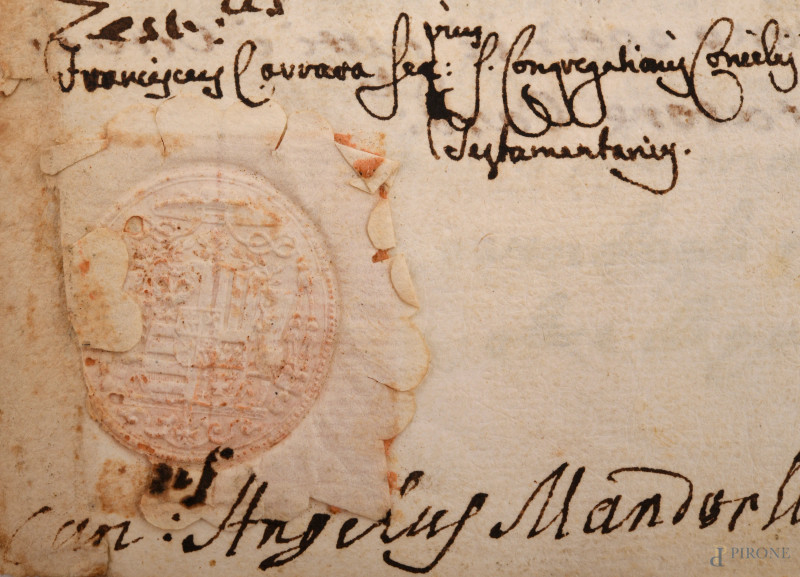 Test: 
Franciscus Carrara Sec:rius S. Congregationis Concilij
Testamentarius.
Can: Angelus Mandorl
PIRONE